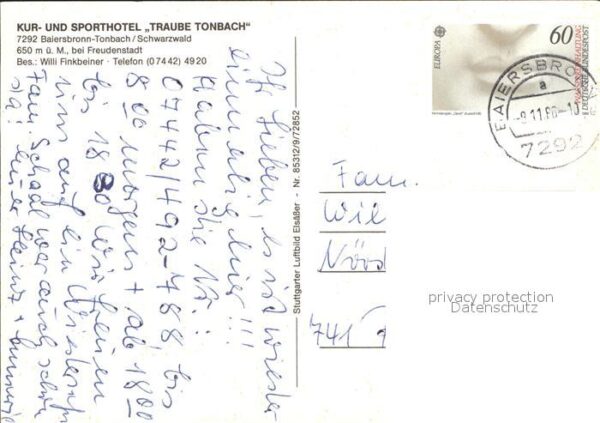 KUR- UND SPORTHOTEL „TRAUBE TONBACH“
7292 Baiersbronn-Tonbach / Schwarzwald
650 m ü. M., bei Freudenstadt
Bes.: Willi Finkbeiner · Telefon (0 74 42) 49 20
Ihr Lieben, es ist wieder
einmalig hier!!!
Haben die Nr.:
07442/492-788, bis
8 00 morgens + ab 18 00
bis 18 30 Wir freuen
uns auf ein Wiedersehen
Fam. Schaal war auch schon
da! Eure Heinz +
Stuttgarter Luftbild Elsäßer – Nr. 85312/9/72852
EUROPA
60
DEUTSCHE BUNDESPOST
BAIERSBRONN
a
-9.11.86-1
7292
Fam.
Wil
741
privacy protection
Datenschutz